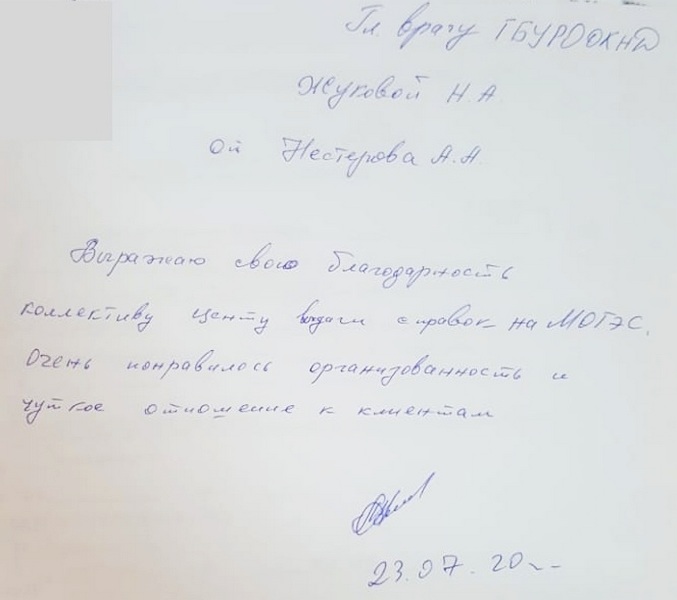 Гл. врачу ГБУРООКНД
Жуковой Н.А.
От Нестерова А.А.
Выражаю свою благодарность
коллективу центу выдачи справок на МОГЭС.
Очень понравилось организованность и
чуткое отношение к клиентам
23.07.20